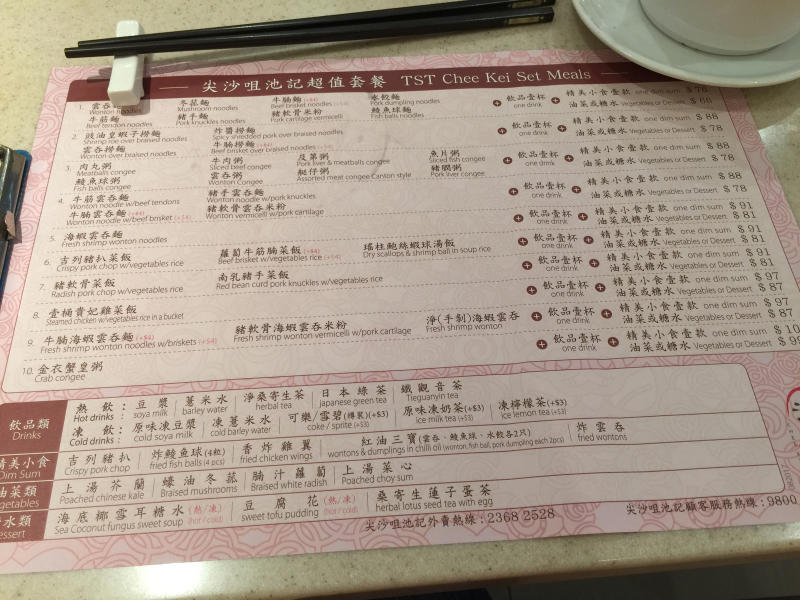 尖沙咀池記超值套餐 TST Chee Kei Set Meals
1. 雲吞 冬菇麵 牛腩麵 (+$4) 水餃麵 飲品壹杯 精美小食壹款 one dim sum $ 76
Wonton noodles Mushroom noodles Beef brisket noodles (+$4) Pork dumpling noodles one drink 油菜或糖水 Vegetables or Dessert $ 66
牛筋麵 豬手麵 豬軟骨米粉 鯪魚球麵
Beef tendon noodles Pork knuckles noodles Pork cartilage vermicelli Fish balls noodles
2. 豉油皇蝦子撈麵 炸醬撈麵 飲品壹杯 精美小食壹款 one dim sum $ 88
Shrimp roe over braised noodles Spicy shredded pork over braised noodles one drink 油菜或糖水 Vegetables or Dessert $ 78
雲吞撈麵 牛腩撈麵 (+$4)
Wonton over braised noodles Beef brisket over braised noodles (+$4)
3. 肉丸粥 牛肉粥 及第粥 魚片粥 飲品壹杯 精美小食壹款 one dim sum $ 88
Meatballs congee Sliced beef congee Pork liver & meatballs congee Sliced fish congee one drink 油菜或糖水 Vegetables or Dessert $ 78
鯪魚球粥 雲吞粥 艇仔粥 豬膶粥
Fish balls congee Wonton Congee Assorted meat congee Canton style Pork liver congee
4. 牛筋雲吞麵 豬手雲吞麵 飲品壹杯 精美小食壹款 one dim sum $ 88
Wonton noodles w/beef tendons Wonton noodles w/pork knuckles one drink 油菜或糖水 Vegetables or Dessert $ 78
牛腩雲吞麵 (+$4) 豬軟骨雲吞米粉
Wonton noodles w/beef brisket (+$4) Wonton vermicelli w/pork cartilage
5. 海蝦雲吞麵 飲品壹杯 精美小食壹款 one dim sum $ 91
Fresh shrimp wonton noodles one drink 油菜或糖水 Vegetables or Dessert $ 81
6. 吉列豬扒菜飯 蘿蔔牛筋腩菜飯 (+$4) 瑤柱鮑絲蝦球湯飯 飲品壹杯 精美小食壹款 one dim sum $ 91
Crispy pork chop w/vegetables rice Beef brisket w/vegetables rice (+$4) Dry scallops & shrimp ball in soup rice one drink 油菜或糖水 Vegetables or Dessert $ 81
7. 豬軟骨菜飯 南乳豬手菜飯 飲品壹杯 精美小食壹款 one dim sum $ 91
Radish pork chop w/vegetables rice Red bean curd pork knuckles w/vegetables rice one drink 油菜或糖水 Vegetables or Dessert $ 81
8. 壹桶貴妃雞菜飯 飲品壹杯 精美小食壹款 one dim sum $ 97
Steamed chicken w/vegetables rice in a bucket one drink 油菜或糖水 Vegetables or Dessert $ 87
9. 牛腩海蝦雲吞麵 (+$4) 豬軟骨海蝦雲吞米粉 淨(手剝)海蝦雲吞 飲品壹杯 精美小食壹款 one dim sum $ 97
Fresh shrimp wonton noodles w/briskets (+$4) Fresh shrimp wonton vermicelli w/pork cartilage Fresh shrimp wonton one drink 油菜或糖水 Vegetables or Dessert $ 87
10. 金衣蟹皇粥 飲品壹杯 精美小食壹款 one dim sum $ 10
Crab congee one drink 油菜或糖水 Vegetables or Dessert $ 9
飲品類 熱飲: 豆漿 薏米水 淨桑寄生茶 日本綠茶 鐵觀音茶
Drinks Hot drinks: soya milk barley water herbal tea japanese green tea Tieguanyin tea
凍飲: 原味凍豆漿 凍薏米水 可樂/雪碧(樽裝)(+$3) 原味凍奶茶(+$3) 凍檸檬茶(+$3)
Cold drinks: cold soya milk cold barley water coke / sprite (+$3) ice milk tea (+$3) ice lemon tea (+$3)
精美小食 吉列豬扒 炸鯪魚球(4粒) 香炸雞翼 紅油三寶(雲吞、鯪魚球、水餃各2只) 炸雲吞
Dim Sum Crispy pork chop fried fish balls (4 pcs) fried chicken wings wontons & dumplings in chilli oil (wonton, fish ball, pork dumpling each 2pcs) fried wontons
油菜類 上湯芥蘭 蠔油冬菇 腩汁蘿蔔 上湯菜心
Vegetables Poached chinese kale Braised mushrooms Braised white radish Poached choy sum
糖水類 海底椰雪耳糖水 (熱/凍) 豆腐花 (熱/凍) 桑寄生蓮子蛋茶
Dessert Sea Coconut fungus sweet soup (hot / cold) sweet tofu pudding (hot / cold) herbal lotus seed tea with egg
尖沙咀池記外賣熱線:2368 2528 尖沙咀池記顧客服務熱線:9800